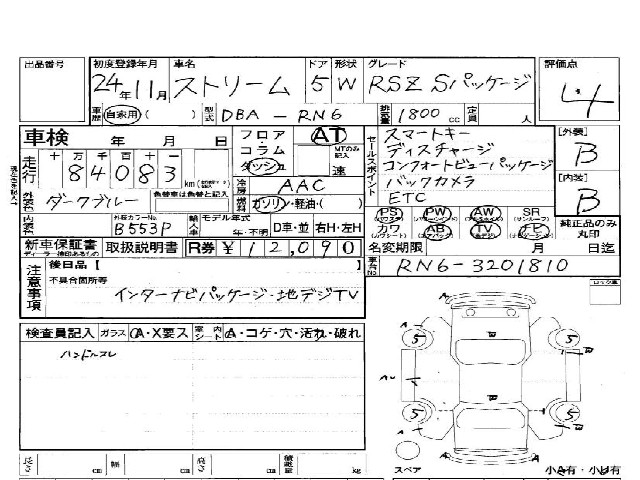 出品番号
初度登録年月 車名 ドア 形状 グレード 評価点
24年11月 ストリーム 5 W RSZ Sパッケージ 4
車歴 自家用( ) 型式 DBA-RN6 排気量 1800cc 定員 人
車検 年 月 日
フロア コラム ダッシュ AT MTのみ記入 速
セールスポイント
スマートキー
ディスチャージ
コンフォートビューパッケージ
バックカメラ
ETC
[外装] B
[内装] B
走行 十万千百十一
84083 km
冷房 AAC
外装色 ダークブルー 色替車は色替と記入
燃料 ガソリン・軽油・( )
PS PW AW SR 純正品のみ丸印
(パワーステ) (パワーウインド) (サンルーフ)
カワ AB TV
(カワシート) (エアバッグ)
内装色 外装カラーNo. B553P 輸入車 モデル年式 年・不明 D車・並 右H・左H
新車保証書 取扱説明書 R券 ¥12,090
名変期限 月 日迄
車台No. RN6-3201810
注意事項
後日品【
不具合箇所等
インターナビパッケージ・地デジTV
検査員記入 ガラス A・X要ス 室内シート A・コゲ・穴・汚れ・破れ
ハンドルスレ
A
5 5
W
A
5 5
W
A
スペア
長さ cm 幅 cm 高さ cm 積載量 kg
小キ有・小凹有